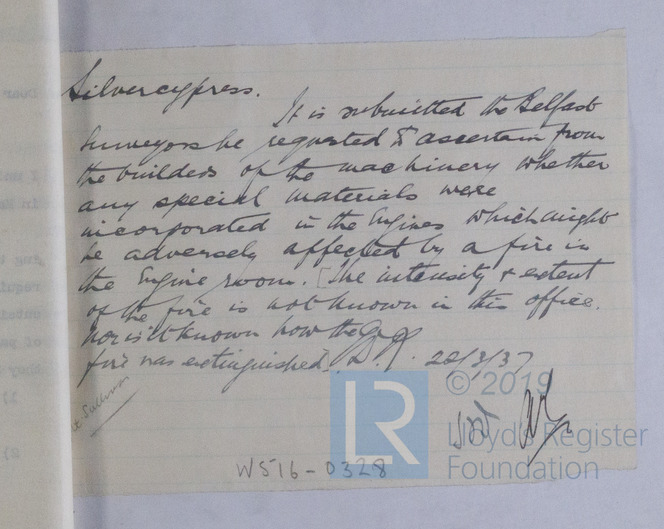 Silvercypress.
It is submitted the Belfast
Surveyors be requested to ascertain from
the builders of the machinery whether
any special materials were
incorporated in the Engines which might
be adversely affected by a fire in
the Engine room. [The intensity & extent
of the fire is not known in this office.
nor is it known how the
fire was extinguished]. 22/3/37
Sullivan
W516-0328
LR
© 2019
Lloyd's Register
Foundation
Dear
I
in
ing
requi
of pa
they
1)
2)